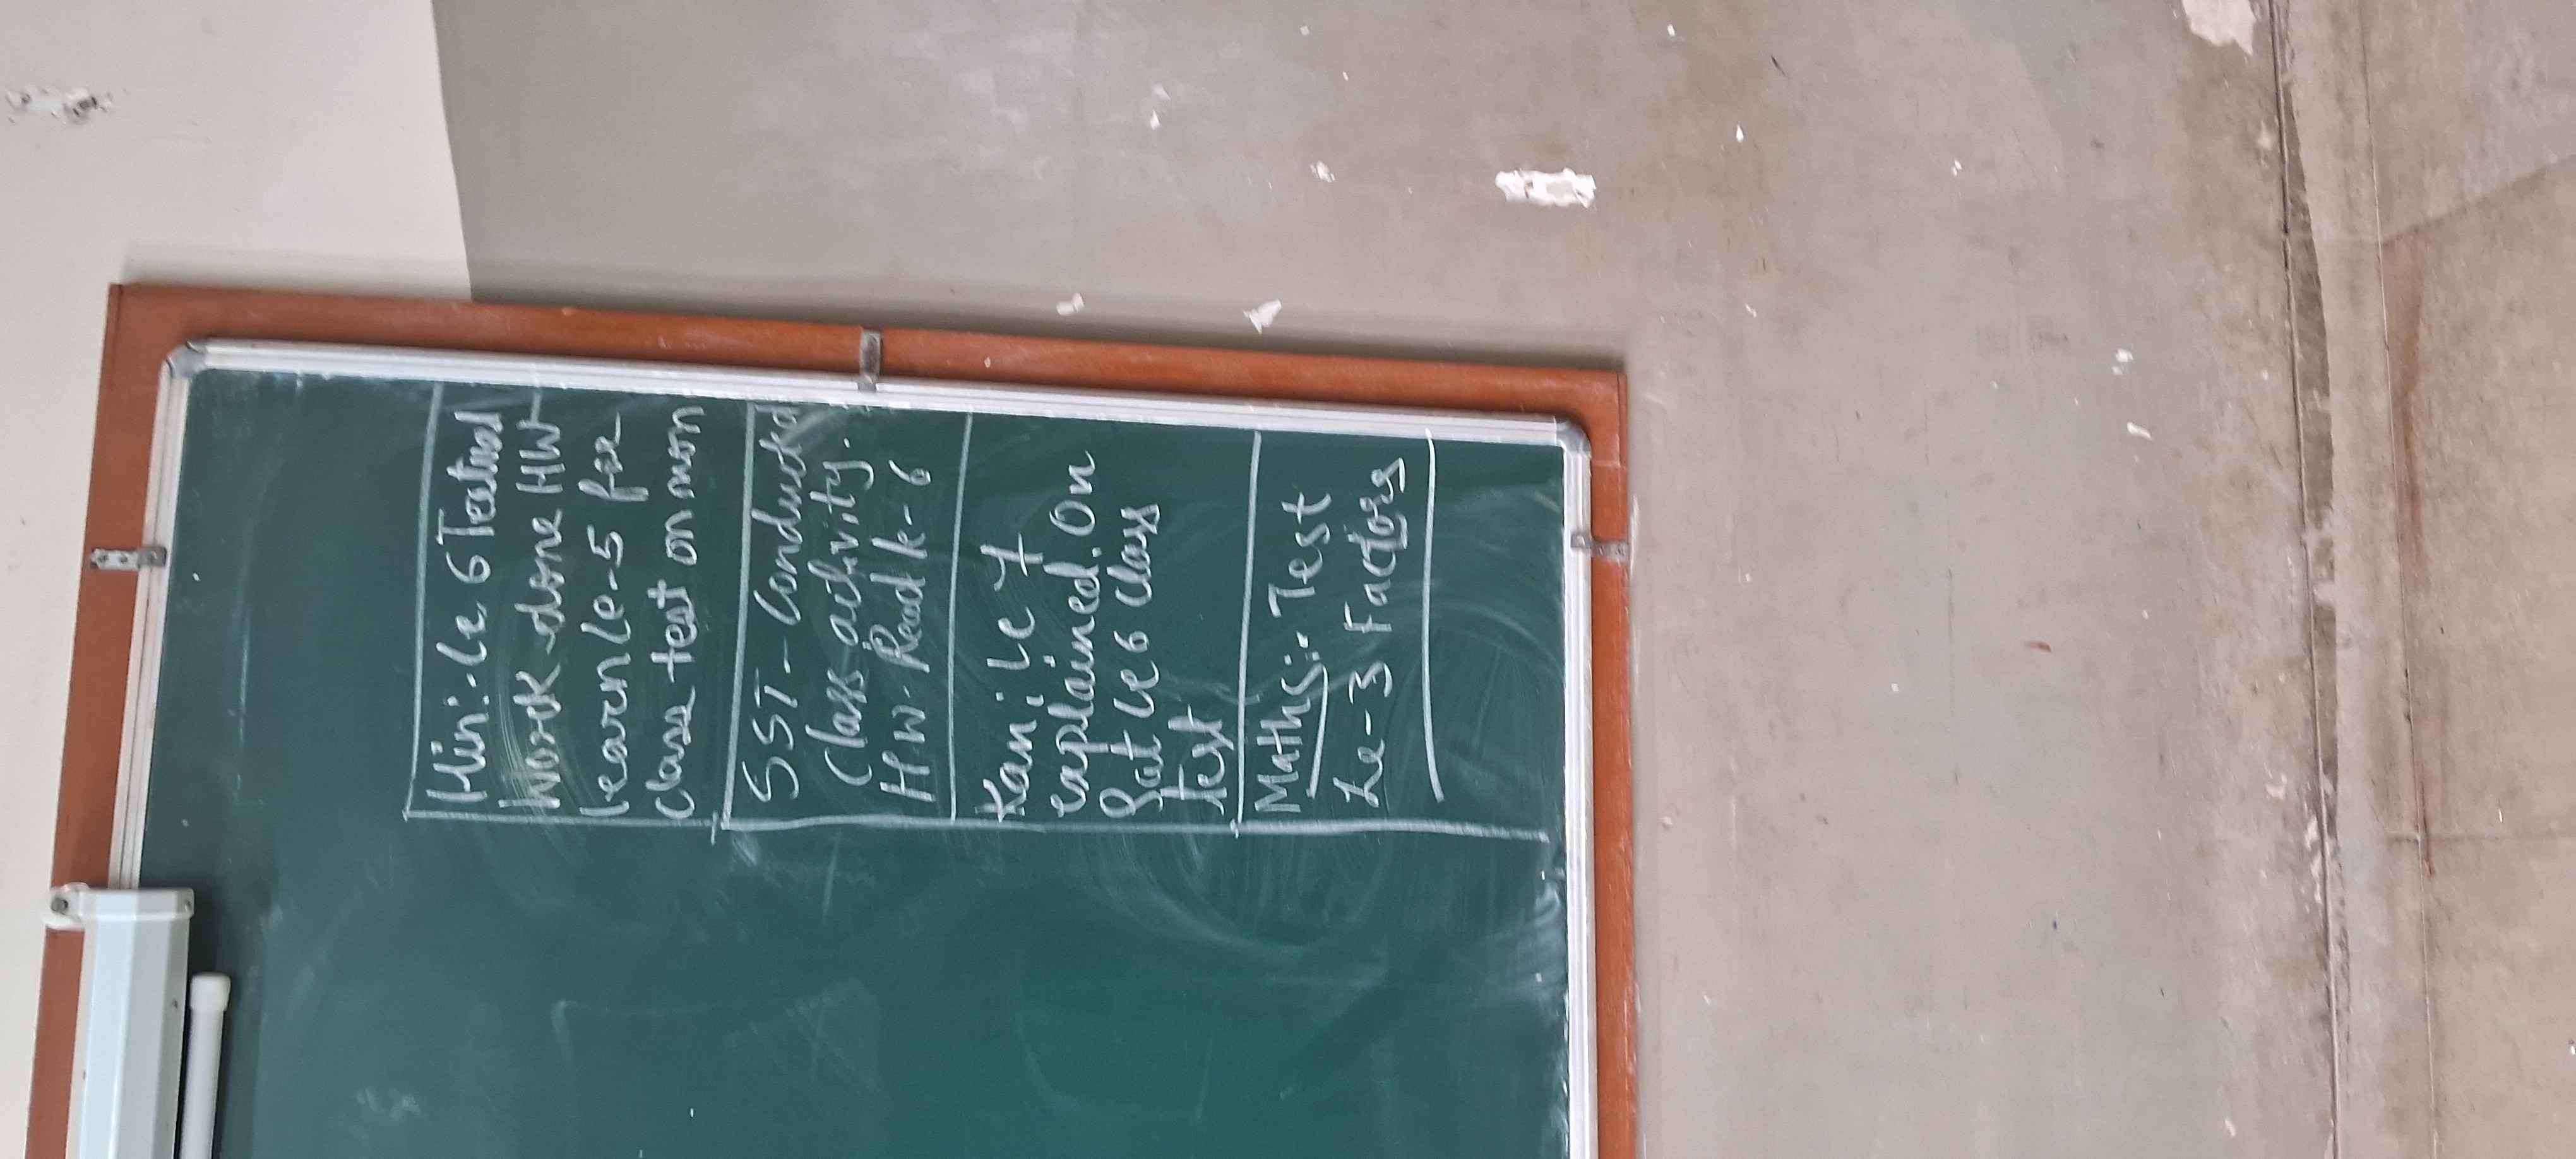 Hin:- Le 6 Textual
Work done HW
learn le-5 for
class test on mon
SST - Conducted
Class activity.
H.W. Read le-6
Kan: Le 7
explained. On
Sat Le 6 class
test
Maths:- Test
Le-3 Factors